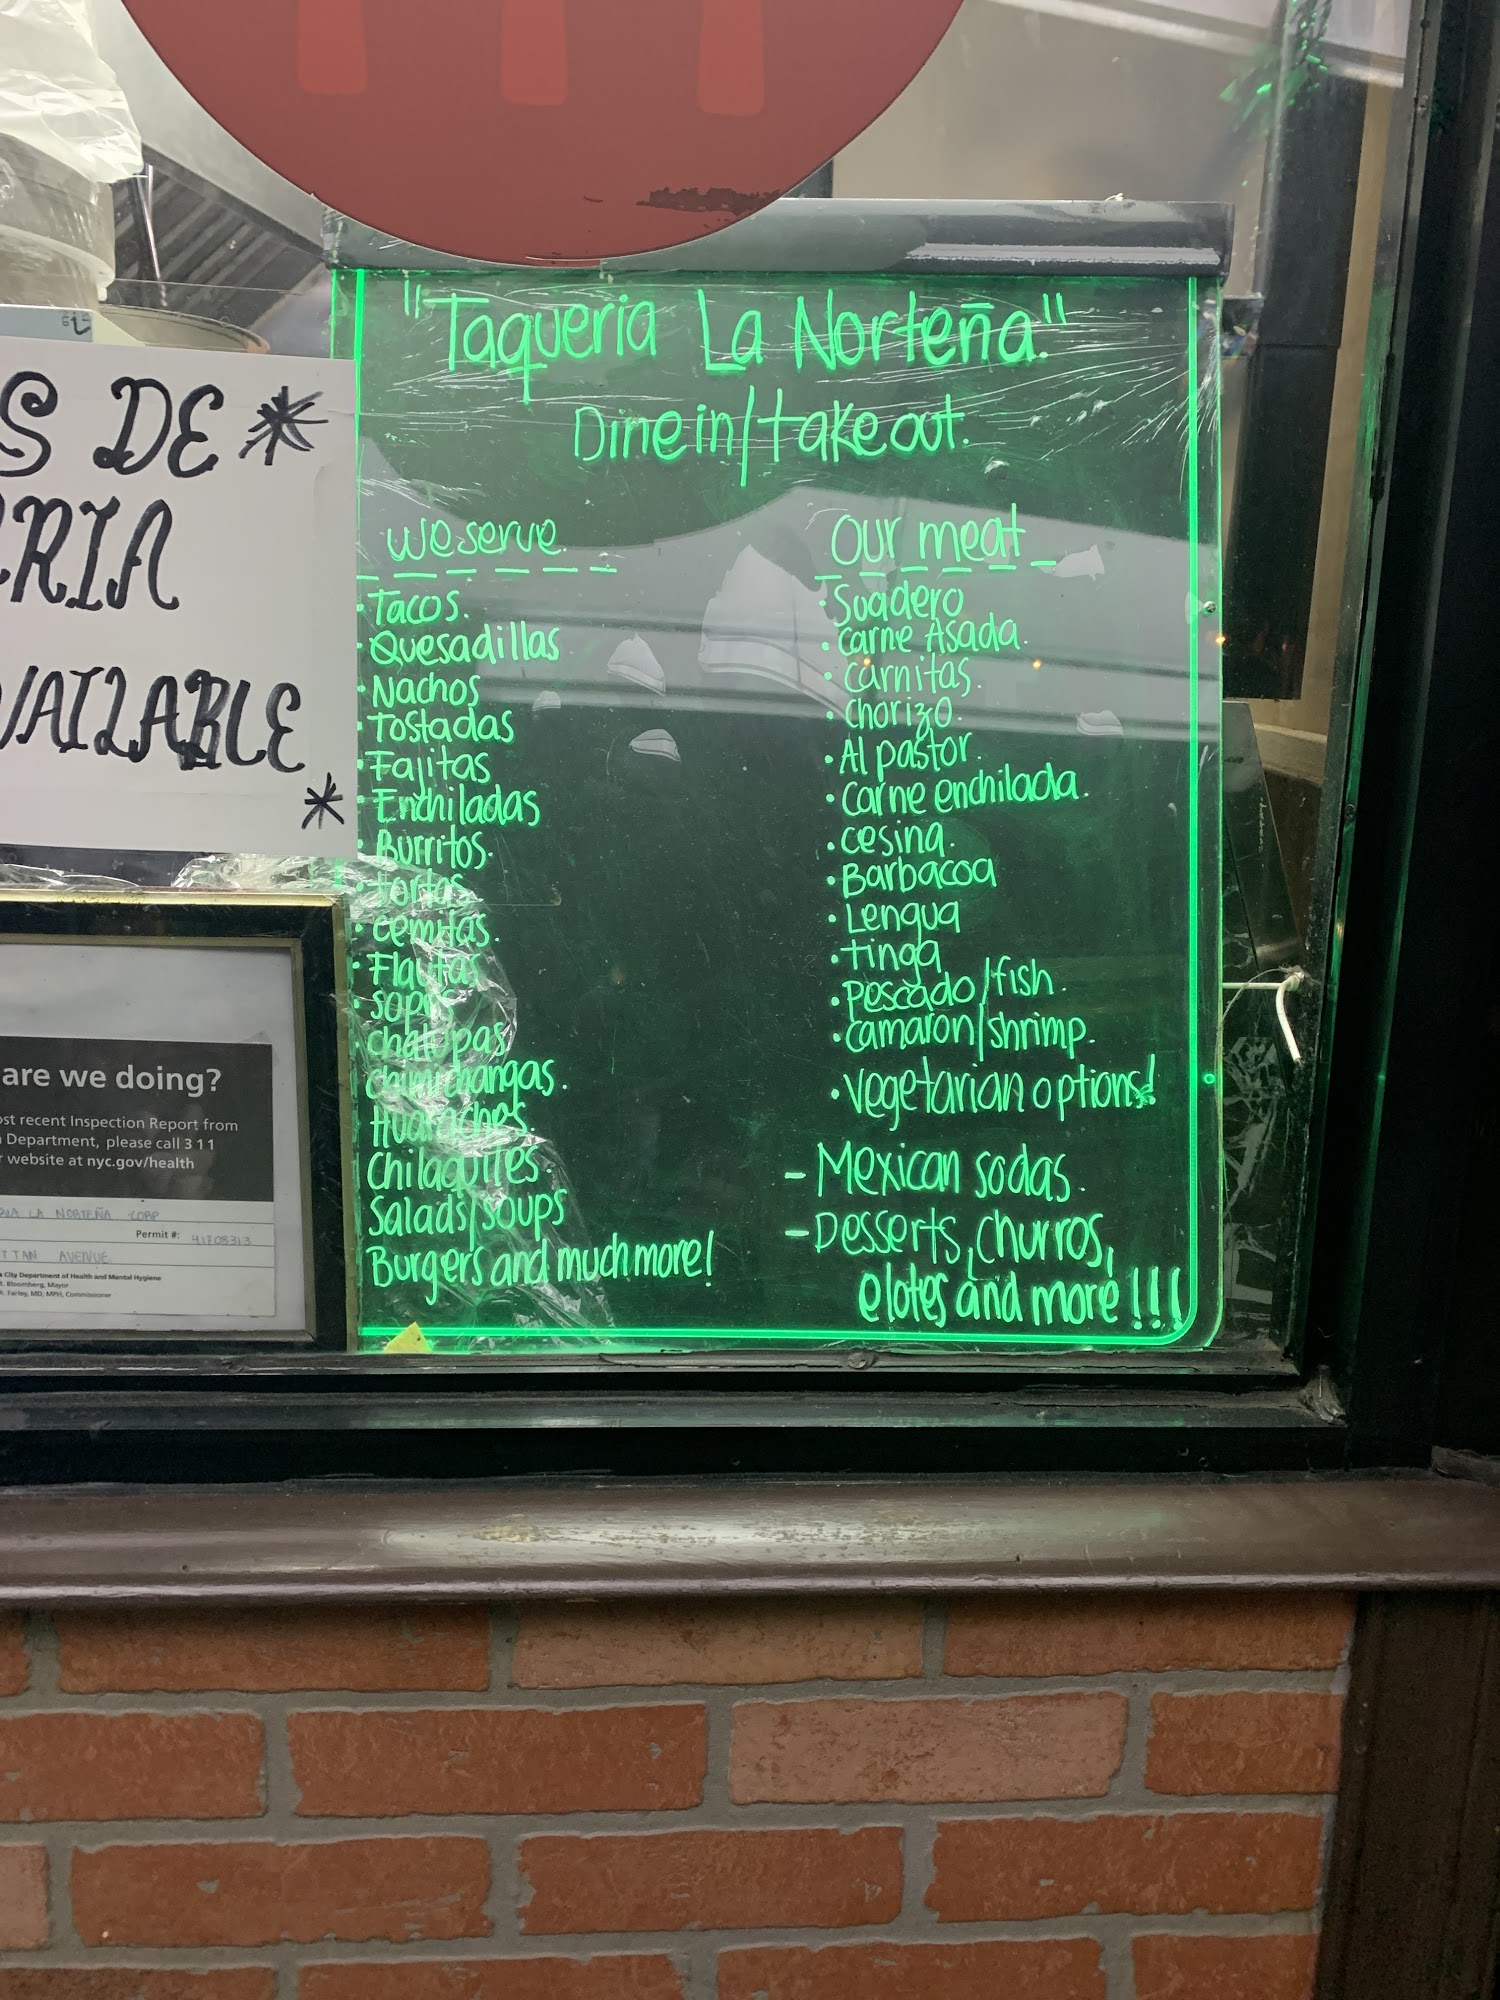 "Taqueria La Norteña."
Dine in/take out.
we serve.
• Tacos.
• Quesadillas
• Nachos
• Tostadas
• Fajitas
• Enchiladas
• Burritos.
• tortas
• cemitas.
• Flautas
• sopes
• chalupas
chimichangas.
Huaraches.
Chilaquiles.
Salads/soups
Burgers and much more!
Our meat
• Suadero
• carne Asada.
• carnitas.
• chorizo.
• Al pastor.
• carne enchilada.
• cesina.
• Barbacoa
• Lengua
• tinga
• Pescado/fish.
• camaron/shrimp.
• vegetarian options!
- Mexican sodas.
- Desserts, churros,
elotes and more!!!
S DE *
RIA
VAILABLE
*
are we doing?
ost recent Inspection Report from
Department, please call 311
r website at nyc.gov/health
LA NORTEÑA CORP
Permit #: 41708313
TTAN AVENUE
City Department of Health and Mental Hygiene
Bloomberg, Mayor
Farley, MD, MPH, Commissioner